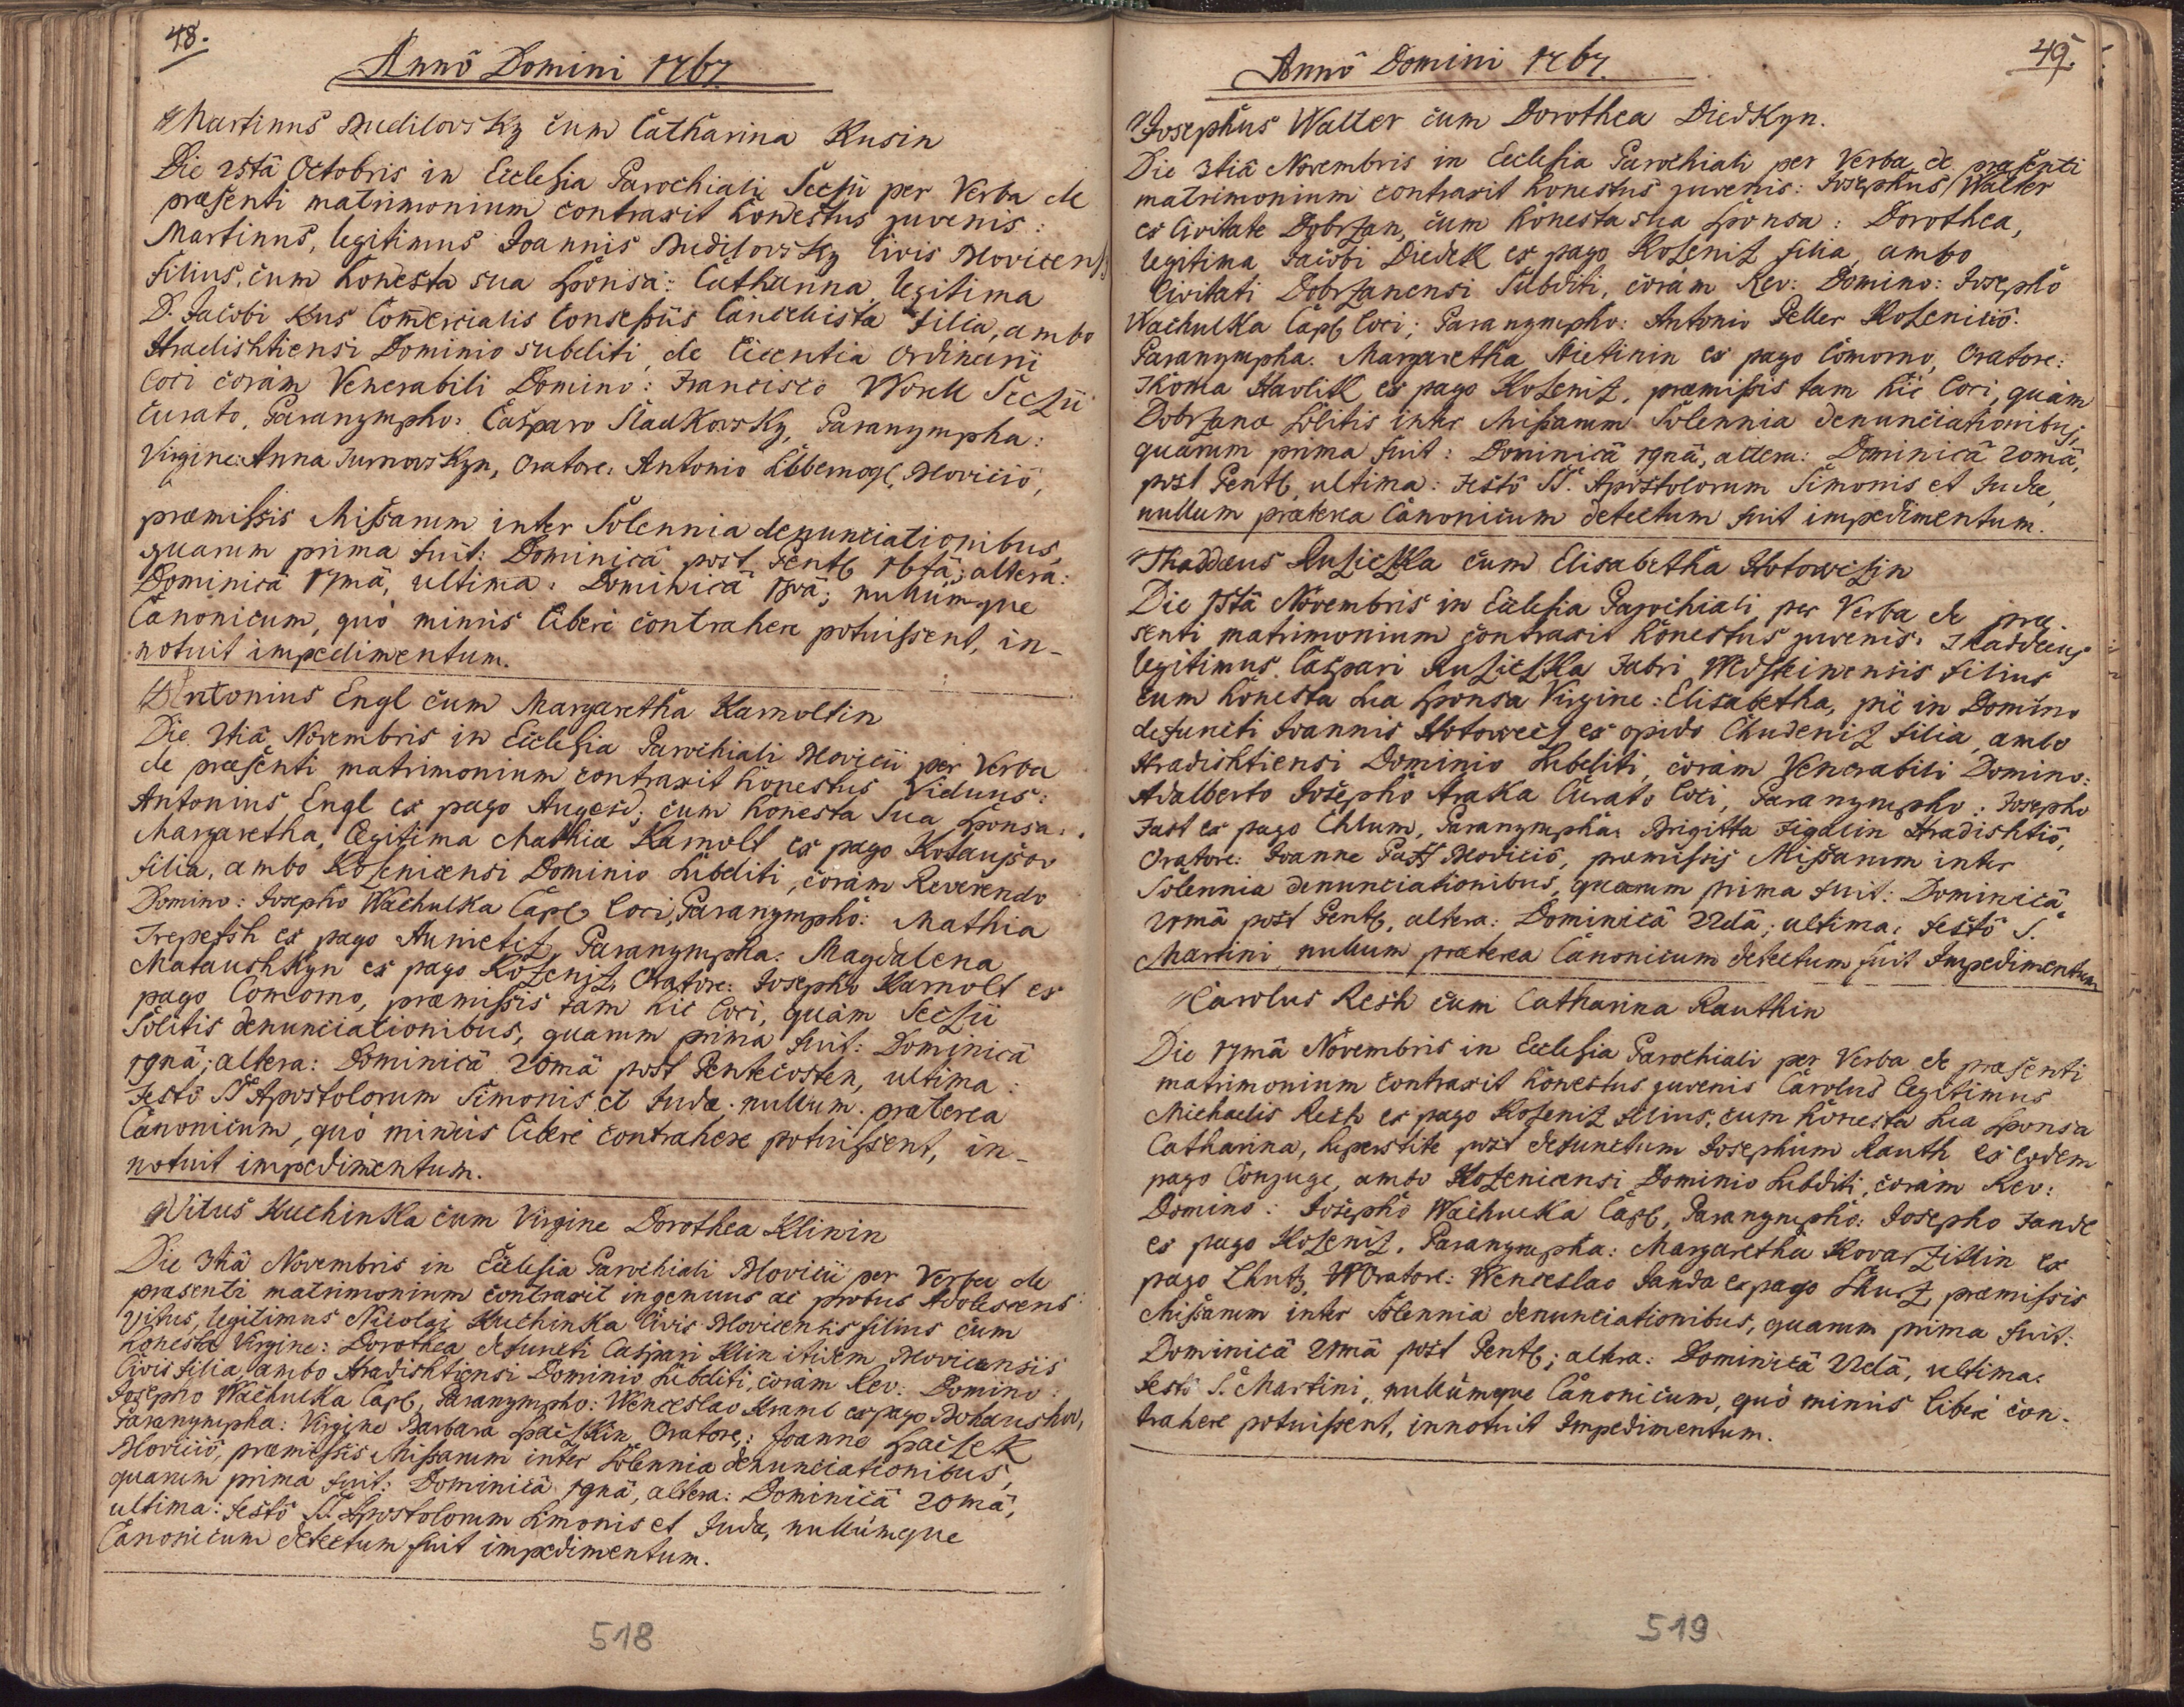 48.
Annô Domini 1767.
Martinus Budilovsky cum Catharina Kusin
Die 25tâ Octobris in Ecclesia Parochiali per Verba de
præsenti matrimonium contraxit honestus juvenis:
Martinus, legitimus Joannis Budilovsky Civis Movicens
filius, cum honesta sua sponsa: Catharina, legitima
D. Jacobi Kus Comercialis Consessûs Cancelista filia, ambo
Hradishtiensi Dominio subditi, de licentia Ordinarii
loci coram Venerabili Domino: Francisco Worell
Curato, Paranympho: Casparo Sladkovsky, Paranympha:
Virgine: Anna Turnovskyn, Oratore: Antonio Movicio,
præmissis Missarum inter Solennia denunciationibus,
quarum prima fuit: Dominicâ post Pent 16tâ; altera:
Dominicâ 17mâ, ultima: Dominicâ 18vâ; nullumque
Canonicum, quò minus liberè contrahere potuissent, in-
notuit impedimentum.
Antonius Engl cum Margaretha Karnoltin
Die 3tiâ Novembris in Ecclesia Parochiali Movicii per Verba
de præsenti matrimonium contraxit honestus Viduus:
Antonius Engl ex pago Augezd; cum honesta sua sponsa:
Margaretha, legitima Mathiæ Karnolt ex pago
filia, ambo Rozenicensi Dominio subditi, coràm Reverendo
Domino: Josepho Wachulka Capl loci, Paranymphô: Mathia
Trepesh ex pago Aunietitz, Paranympha: Magdalena
Mataushkyn ex pago Rozenitz, Oratore: Josepho Karnolt ex
pago Comorno, præmissis tam hic loci, quàm
Solitis denunciationibus, quarum prima fuit: Dominicâ
19nâ; altera: Dominicâ 20mâ post Pentecosten, ultima:
Festô SS. Apostolorum Simonis et Judæ. nullum præterea
Canonicum, quò minus liberè contrahere potuissent, in-
notuit impedimentum.
Vitus Kuchinka cum Virgine Dorothea Klinin
Die 3tiâ Novembris in Ecclesia Parochiali Movicii per Verba de
præsenti matrimonium contraxit ingenuus ac probus Adolescens:
Vitus, legitimus Nicolai Kuchinka Civis Movicensis filius cum
honesta Virgine: Dorothea defuncti Caspari Klin itidem Movicensis
Civis filia, ambo Hradishtiensi Dominio subditi, coram Rev: Domino:
Josepho Wachulka Capl, Paranympho: Wenceslao Kraml ex pago
Paranympha: Virgine Barbara Spaczkin Oratore: Joanne Spaczek
Moviciô, præmissis Missarum inter Solennia denunciationibus,
quarum prima fuit: Dominicâ 19nâ, altera: Dominicâ 20mâ,
ultima: Festô SS. Apostolorum Simonis et Judæ, nullumque
Canonicum detectum fuit impedimentum.
518
49.
Annô Domini 1767.
Josephus Walter cum Dorothea Diedkyn.
Die 3tiâ Novembris in Ecclesia Parochiali per Verba de præsenti
matrimonium contraxit honestus juvenis: Josephus Walter
ex Civitate Dobrzan, cum honesta sua sponsa: Dorothea,
legitima Jacobi Diedek ex pago Rozenitz filia, ambo
Civitati Dobrzanensi Subditi, coràm Rev: Domino: Josephô
Wachulka Capl loci; Paranympho: Antonio Peller Rozeniciô.
Paranympha: Margaretha ex pago Comorno, Oratore:
Thoma Havlik ex pago Rozenitz, præmissis tam hic loci, quàm
Dobrzanæ solitis inter Missarum Solennia denunciationibus,
quarum prima fuit: Dominicâ 19nâ, altera: Dominicâ 20mâ,
post Pent, ultima: Festô SS. Apostolorum Simonis et Judæ,
nullum præterea Canonicum detectum fuit impedimentum.
Thaddæus Ruziczka cum Elisabetha Hotowczin
Die 15tâ Novembris in Ecclesia Parochiali per Verba de præ-
senti matrimonium contraxit honestus juvenis: Thaddæus
legitimus Caspari Ruziczka Fabri filius
cum honesta sua sponsa Virgine: Elisabetha, piè in Domino
defuncti Joannis Hotowecz ex opido Chudenitz filia, ambo
Hradishtiensi Dominio subditi, coràm Venerabili Domino:
Adalberto Josepho Araka Curato loci, Paranympho: Josepho
Fast ex pago Chlum, Paranympha: Brigitta Figalin Hradishtiô,
Oratore: Joanne Moviciô, præmissis Missarum inter
Solennia denunciationibus, quarum prima fuit: Dominicâ
21mâ post Pent, altera: Dominicâ 22dâ; ultima: Festô S.
Martini, nullum præterea Canonicum detectum fuit Impedimentum
Carolus Resh cum Catharina Rauthin
Die 17mâ Novembris in Ecclesia Parochiali per Verba de præsenti
matrimonium contraxit honestus juvenis Carolus legitimus
Michaelis Resh ex pago Rozenitz filius, cum honesta sua sponsa
Catharina, superstite post defunctum Josephum Rauth ex eodem
pago Conjuge, ambo Rozenicensi Dominio subditi, coràm Rev:
Domino: Josephô Wachulka Capl, Paranympho: Josepho Jande
ex pago Rozenitz, Paranympha: Margaretha Kovarzikin ex
pago Lhutz, Oratore: Wenceslao Janda ex pago Lhutz, præmissis
Missarum inter Solennia denunciationibus, quarum prima fuit:
Dominicâ 21mâ post Pent; altera: Dominicâ 22dâ, ultima:
Festô S. Martini, nullumque Canonicum, quò minus liberè con-
trahere potuissent, innotuit Impedimentum.
519